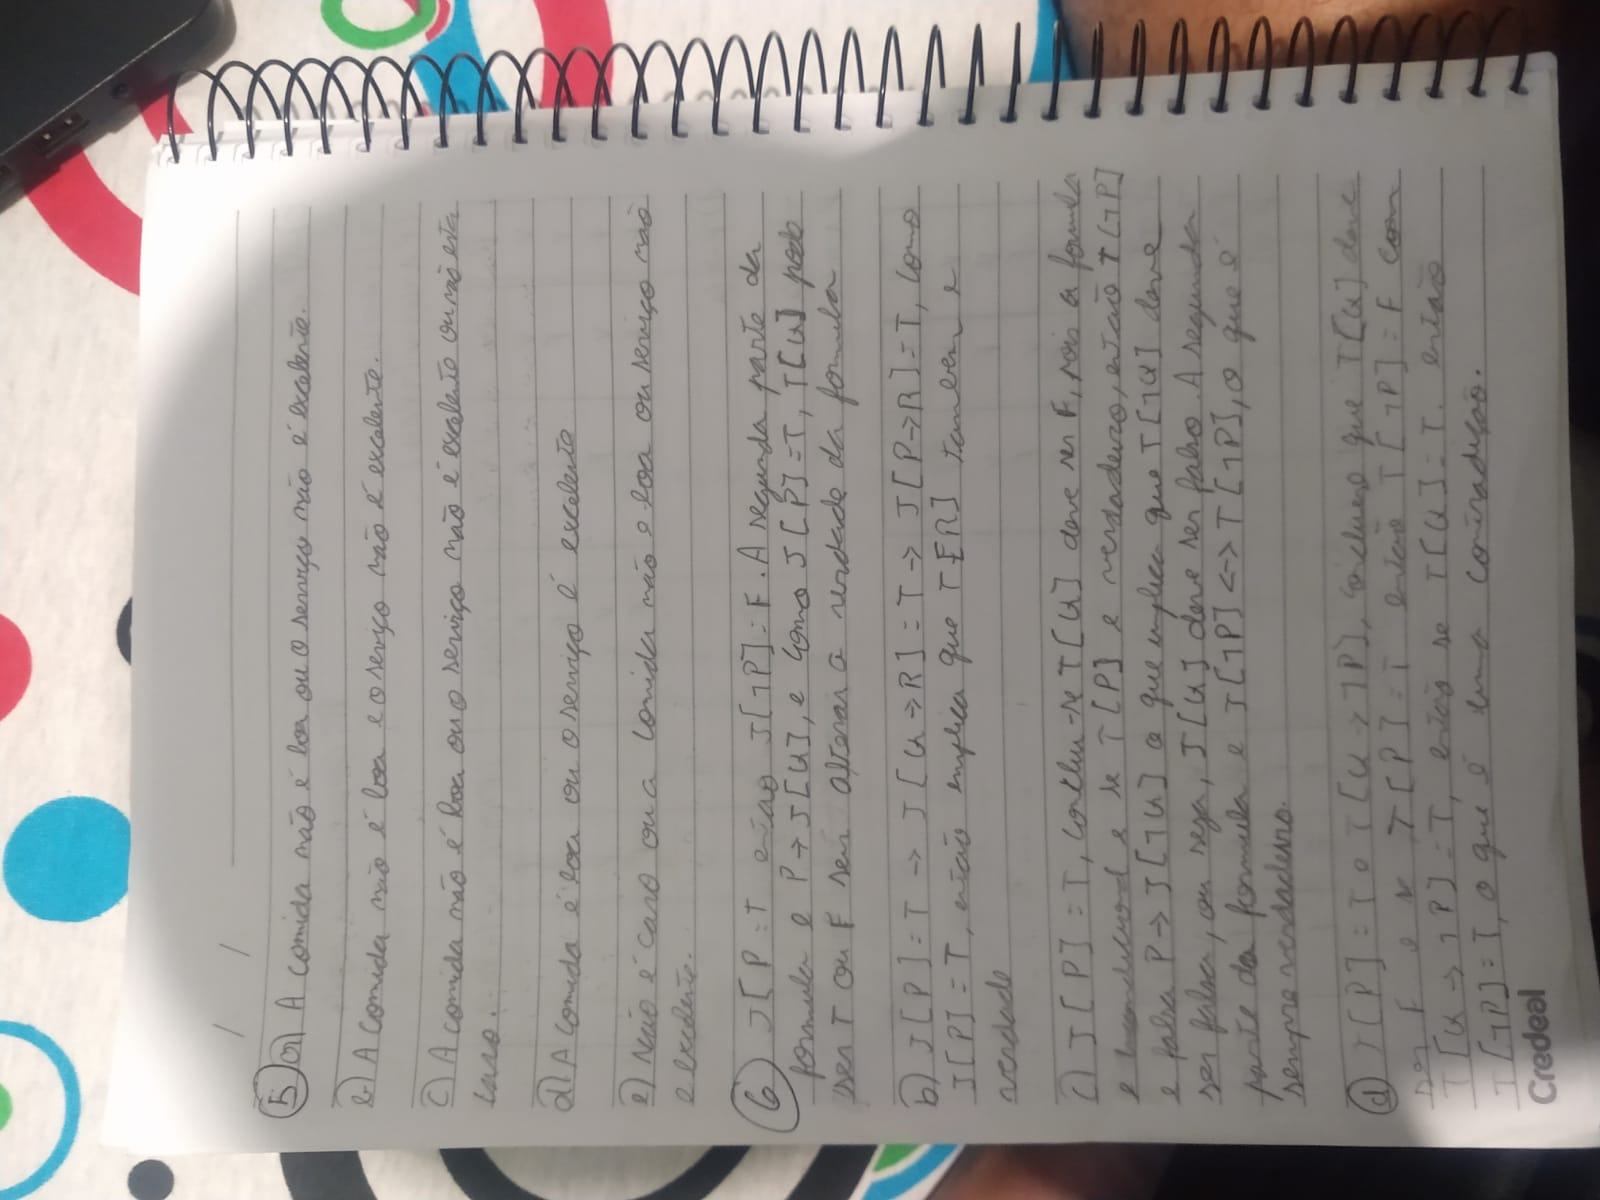 / /
5 a) A comida não é boa ou o serviço não é excelente.
b) A comida não é boa e o serviço não é excelente.
c) A comida não é boa ou o serviço não é excelente ou não esta
caro.
d) A comida é boa ou o serviço é excelente
e) Não é caro ou a comida não e boa ou serviço não
e excelente.
6 J[P = T então J[¬P] = F. A segunda parte da
formula e P → J[U], e como J[P] = T, T[U] pode
ser T ou F sem alterar a verdade da formula
b) J[P] = T → J[U → R] = T → J[P → R] = T, como
J[P] = T, então implica que T[R] tambem e
verdade
c) J[P] = T, conclui-se T[U] deve ser F, pois a formula
e e se T[P] e verdadeiro, então T[¬P]
e falsa P → J[¬U] o que implica que T[¬U] deve
ser falsa, ou seja, J[U] deve ser falso. A segunda
parte da formula e J[¬P] <-> T[¬P], o que é
sempre verdadeiro.
d) J[P] = T e T[U → ¬P], que T[U] deve
ser F e se T[P] = T então T[¬P] = F com
T[U → ¬P] = T, então se T[U] = T. então
T[¬P] = T, o que é uma contradição.
Credeal